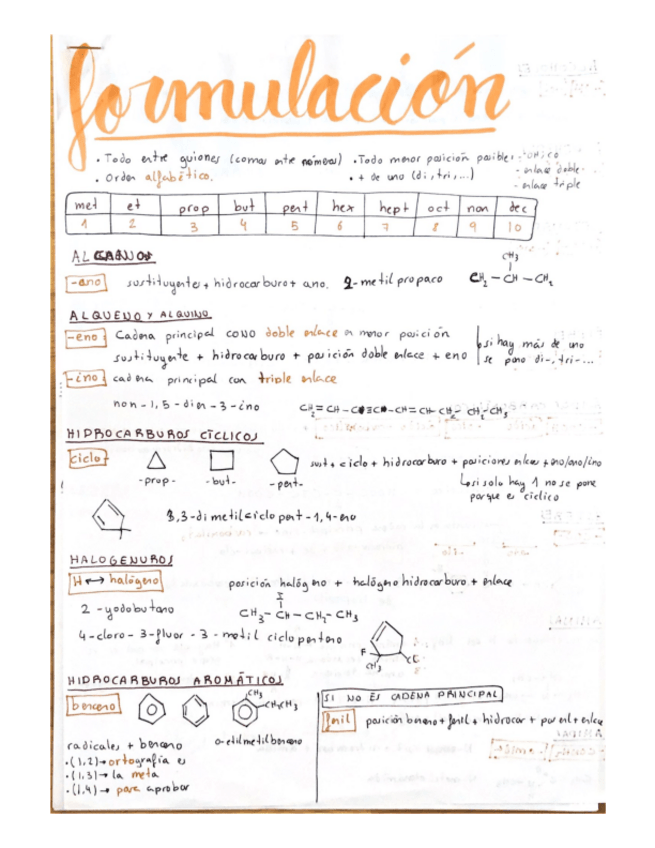 formulación
• Todo entre guiones (comas entre números) • Todo menor posición posible:
• Orden alfabético. • + de uno (di, tri, ...) - enlace doble
- enlace triple
met et prop but pent hex hept oct non dec
1 2 3 4 5 6 7 8 9 10
ALCANOS
-ano sustituyente + hidrocarburo + ano. 2-metil propaco
CH3
CH2 - CH - CH2
ALQUENO Y ALQUINO
-eno Cadena principal como doble enlace en menor posición
sustituyente + hidrocarburo + posición doble enlace + eno
si hay más de uno
se pone di-, tri-...
-ino cadena principal con triple enlace
non - 1, 5 - dien - 3 - ino CH2=CH-C≡C-CH=CH-CH2-CH2-CH3
HIDROCARBUROS CÍCLICOS
ciclo -prop- -but- -pent- sust + ciclo + hidrocarburo + posiciones enlaces + ano/eno/ino
si solo hay 1 no se pone
porque es cíclico
3,3-dimetilciclo pent-1,4-eno
HALOGENUROS
H ↔ halógeno posición halógeno + halógeno hidrocarburo + enlace
2-yodobutano
I
CH3-CH-CH2-CH3
4-cloro-3-fluor-3-metil ciclo penteno
F
CH3
Cl
HIDROCARBUROS AROMÁTICOS
benceno
CH3
CH2CH3
radicales + benceno o-etilmetilbenceno
• (1,2) → ortografía es
• (1,3) → la meta
• (1,4) → para aprobar
SI NO ES CADENA PRINCIPAL
fenil posición benceno + fenil + hidrocar + pos enl + enlace